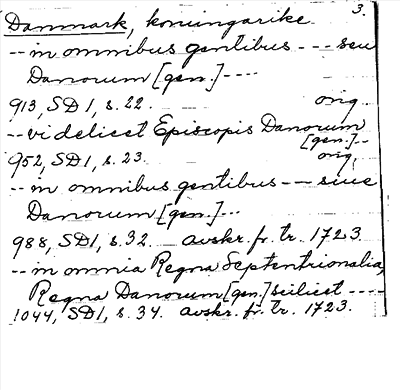 3.
Danmark, konungarike.
-- in omnibus gentibus --- seu
Danorum [gen.] ----
913, SD 1, s. 22. orig.
-- videlicet Episcopis Danorum
[gen.] --
952, SD 1, s. 23. orig.
-- in omnibus gentibus --- siue
Danorum [gen.] ---
988, SD 1, s. 32. avskr. fr. tr. 1723.
-- in omnia Regna Septentrionalia,
Regna Danorum [gen.] scilicet ----
1044, SD 1, s. 34. avskr. fr. tr. 1723.